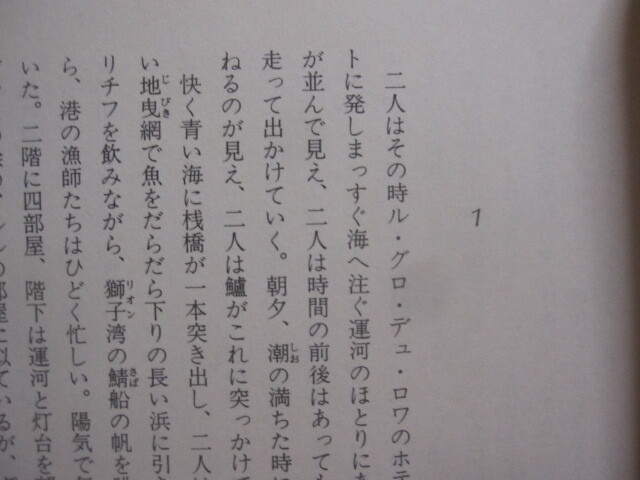 1
二人はその時ル・グロ・デュ・ロワのホテ
トに発しまっすぐ海へ注ぐ運河のほとりにあ
が並んで見え、二人は時間の前後はあっても
走って出かけていく。朝夕、潮の満ちた時に
しお
ねるのが見え、二人は鱸がこれに突っかけて
快く青い海に桟橋が一本突き出し、二人は
い地曳網で魚をだらだら下りの長い浜に引き
じびき
リチフを飲みながら、獅子湾の鯖船の帆を
リオン
さば
ら、港の漁師たちはひどく忙しい。陽気で
いた。二階に四部屋、階下は運河と灯台を
の部屋に似ているが、